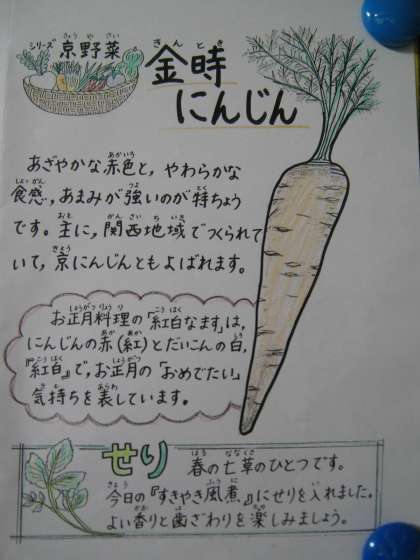 シリーズ 京野菜
金時
にんじん
あざやかな赤色と，やわらかな
食感，あまみが強いのが特ちょう
です。主に，関西地域でつくられて
いて，京にんじんともよばれます。
お正月料理の「紅白なます」は，
にんじんの赤（紅）とだいこんの白，
『紅白』で，お正月の「おめでたい」
気持ちを表しています。
せり
春の七草のひとつです。
今日の『すきやき風煮』にせりを入れました。
よい香りと歯ざわりを楽しみましょう。